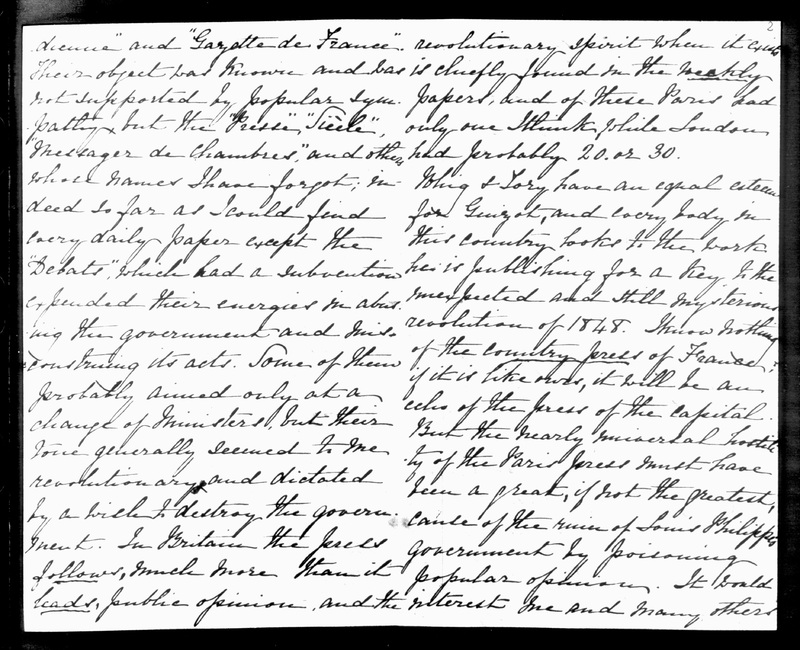 dienne" and "Gazette de France".
Their object was known and was
not supported by popular sym-
pathy, but the "Presse" "Siècle",
"Messager de Chambres", and others
whose names I have forgot; in-
deed so far as I could find
every daily paper except the
"Debats", which had a subvention
expended their energies in abus-
ing the government and mis-
construing its acts. Some of them
probably aimed only at a
change of Ministers, but their
tone generally seemed to me
revolutionary and dictated
by a wish to destroy the govern-
ment. In Britain the press
follows, much more than it
leads, public opinion, and the
2
revolutionary spirit when it exists
is chiefly found in the weekly
papers, and of these Paris had
only one I think, while London
had probably 20. or 30.
Whig & Tory have an equal esteem
for Guizot, and every body in
this country looks to the work
he is publishing for a key to the
unexpected and still mysterious
revolution of 1848. I know nothing
of the country press of France;
if it is like ours, it will be an
echo of the press of the capital.
But the nearly universal hostili-
ty of the Paris press must have
been a great, if not the greatest,
cause of the ruin of Louis Philippe's
government by poisoning
popular opinion. It would
interest me and many others